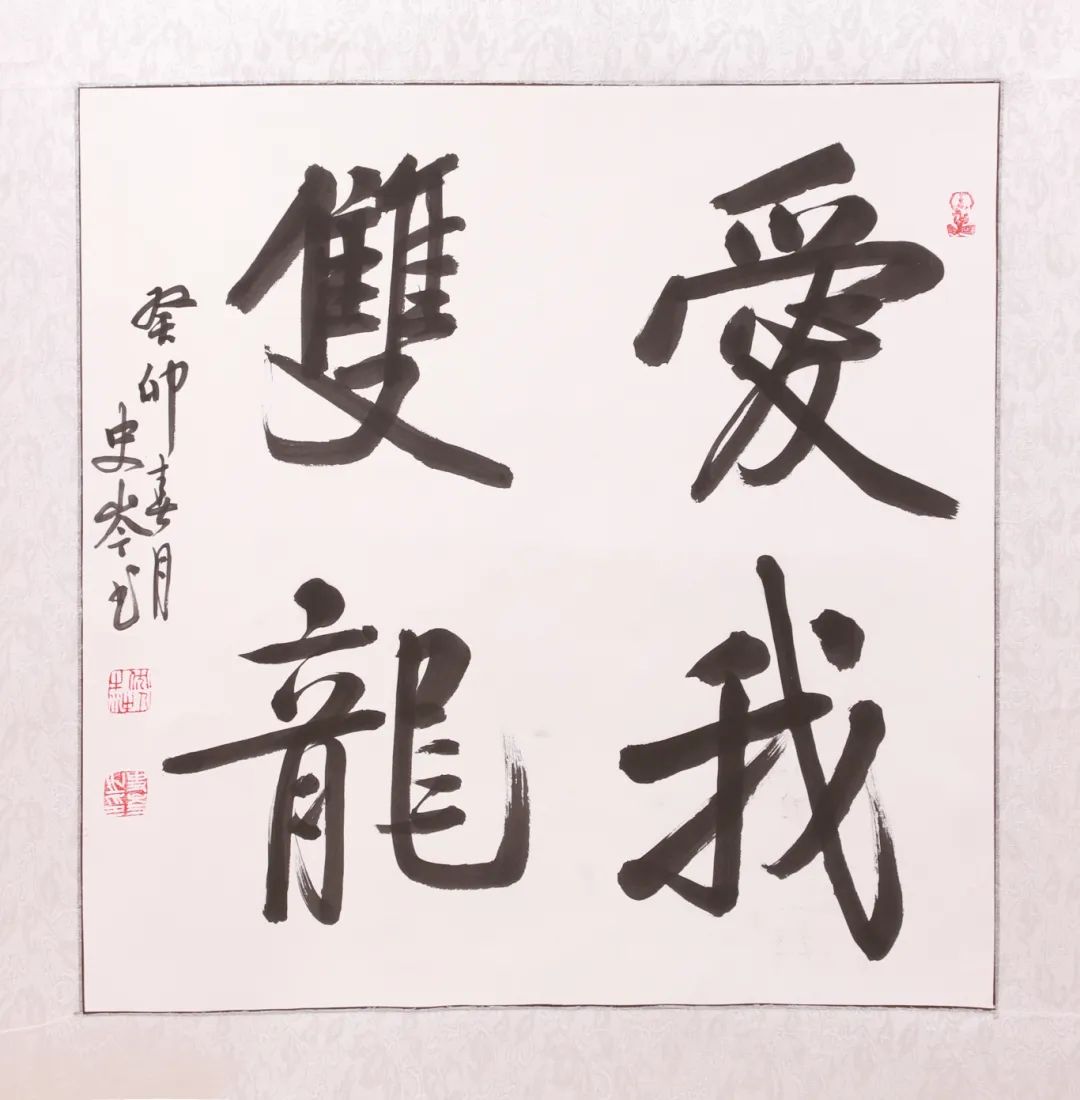 愛我
雙龍
癸卯春月
史岑书